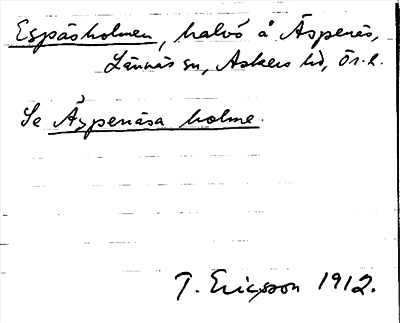 Espåsholmen, halvö å Äspenäs,
Lännäs sn, Askers hd, Ör. l.
Se Äspenåsa holme.
T. Ericsson 1912.